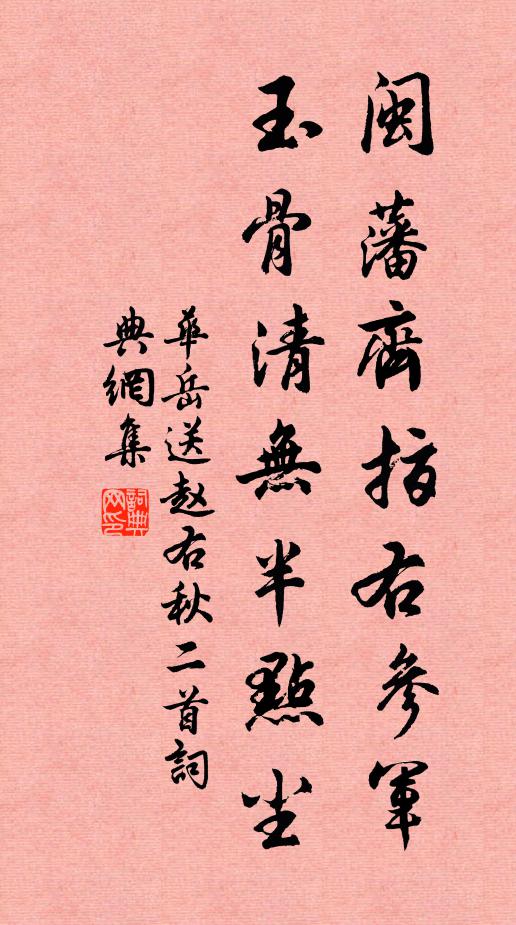 閩藩齊指右參軍
玉骨清無半點尘
華岳送赵右秋二首詞
典網集
詞典
网印